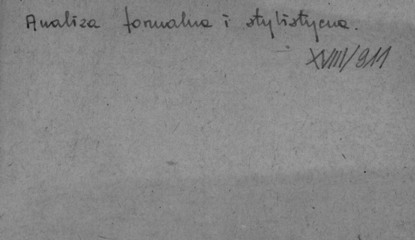 Analiza formalna i stylistyczna.
XVIII/911